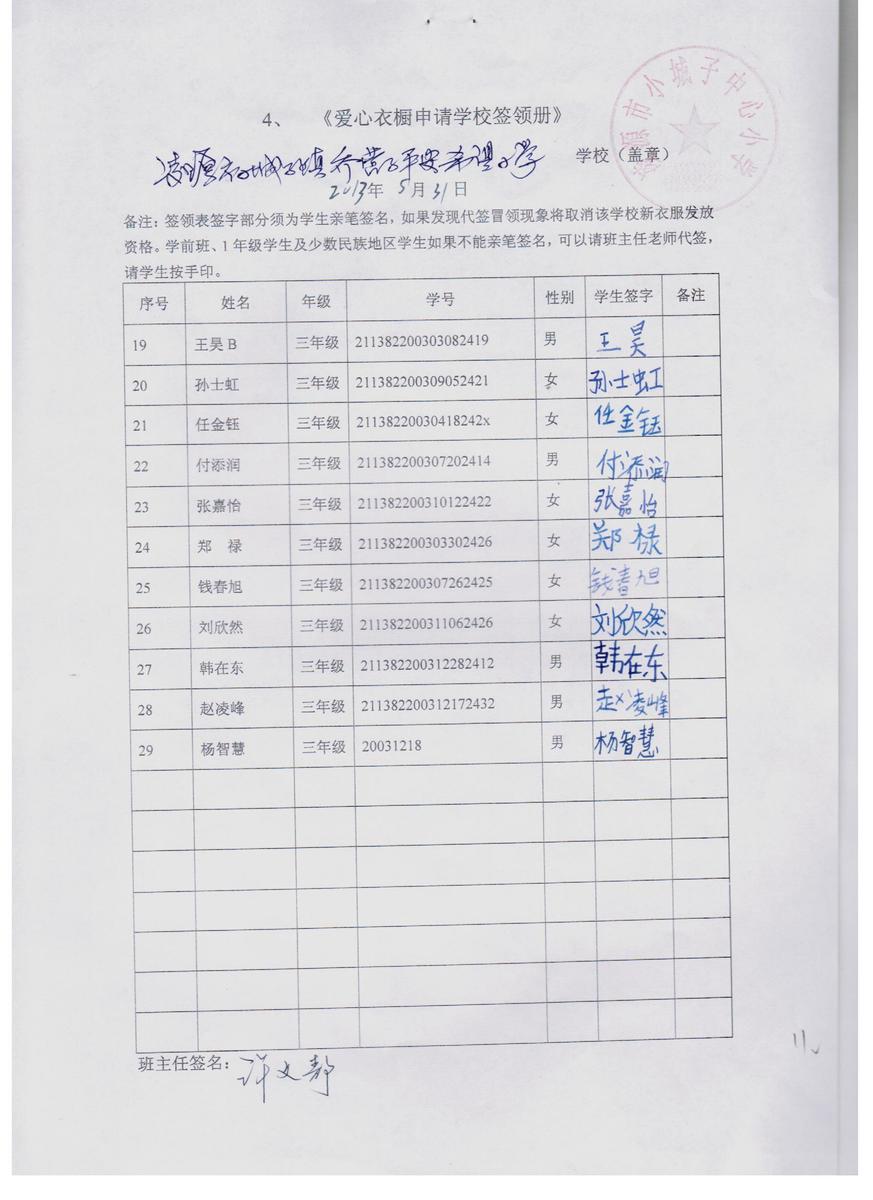 凌源市小城子中心小学
4、 《爱心衣橱申请学校签领册》
凌源市小城子镇乔营子平安希望小学 学校（盖章）
2013年 5月31日
备注：签领表签字部分须为学生亲笔签名，如果发现代签冒领现象将取消该学校新衣服发放
资格。学前班、1 年级学生及少数民族地区学生如果不能亲笔签名，可以请班主任老师代签，
请学生按手印。
序号 姓名 年级 学号 性别 学生签字 备注
19 王昊 B 三年级 211382200303082419 男 王昊
20 孙士虹 三年级 211382200309052421 女 孙士虹
21 任金钰 三年级 21138220030418242x 女 任金钰
22 付添润 三年级 211382200307202414 男 付添润
23 张嘉怡 三年级 211382200310122422 女 张嘉怡
24 郑 禄 三年级 211382200303302426 女 郑禄
25 钱春旭 三年级 211382200307262425 女 钱春旭
26 刘欣然 三年级 211382200311062426 女 刘欣然
27 韩在东 三年级 211382200312282412 男 韩在东
28 赵凌峰 三年级 211382200312172432 男 赵凌峰
29 杨智慧 三年级 20031218 男 杨智慧
班主任签名：